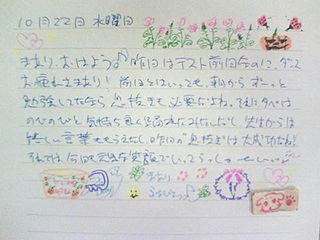 10月22日 水曜日
おはよう♪昨日はテスト前日なのに、ダンス
お疲れさまり! 前日とはいっても、朝からずーっと
勉強してたなら 息抜きも 必要だよね。
のびのびと 気持ち良く 踊れたみたいだし、先生からは
嬉しい言葉ももらえたし 昨日の 息抜きは 大成功だね!
それでは 今日も元気な笑顔で いってらっしゃーい